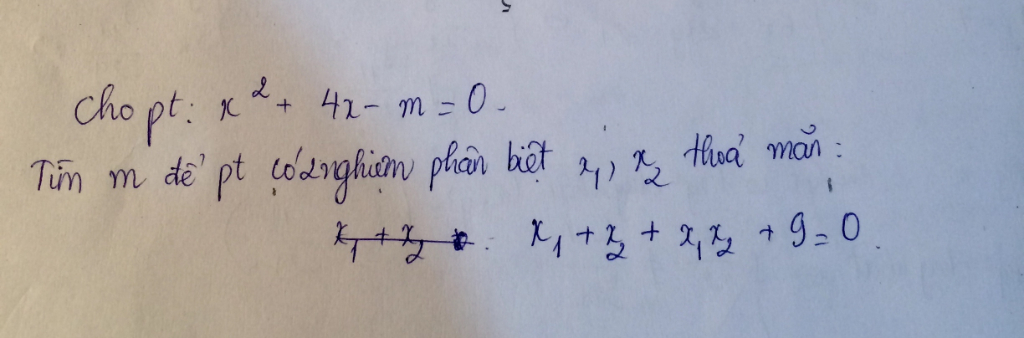 Cho pt: x² + 4x - m = 0.
Tìm m để pt có 2 nghiệm phân biệt x₁, x₂ thoả mãn:
x₁ + x₂ + x₁x₂ + 9 = 0.